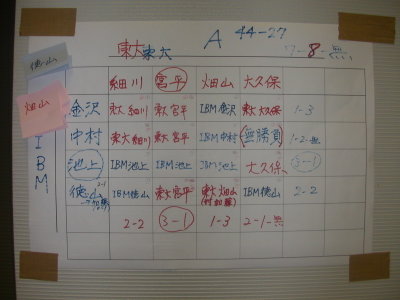 徳山
畑山
東大 東大 A 44-27
-8-無
細川 宮平 畑山 大久保
IBM
金沢 東大 細川 東大 宮平 IBM 金沢 東大 大久保 1-3
中村 東大 細川 東大 宮平 IBM 中村 無勝負 1-2-無
池上 IBM 池上 IBM 池上 IBM 池上 大久保 3-1
徳山 IBM 徳山 東大 宮平 東大 畑山 IBM 徳山 2-2
2-2 3-1 1-3 2-1-無